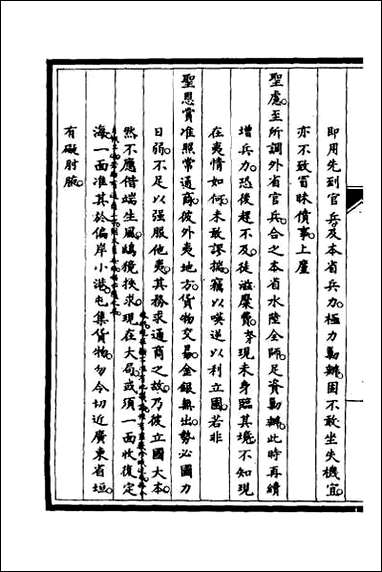 即用先到官兵及本省兵力極力勦辦固不敢坐失機宜
亦不致冒昧僨事上廑
聖慮至所調外省官兵合之本省水陸全師足資勦辦此時再續
增兵力恐後趕不及徒滋糜費等現未身臨其境不知現
在夷情如何未敢謬揣竊以𠸄逆以利立國若非
聖恩賞准照常通商彼外夷地方貨物交易金銀無出勢必國力
日弱不足以強服他夷其務求通商之故乃彼立國大本
然不應借端生風鴟張挾求現在大局或須一面收復定
海一面准其於偏岸小港屯集貨物勿令切近廣東省垣
有礙肘腋